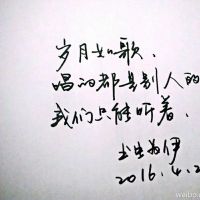 岁月如歌、
唱的都是别人的
我们只能听着.
2016.4.2
weibo.c